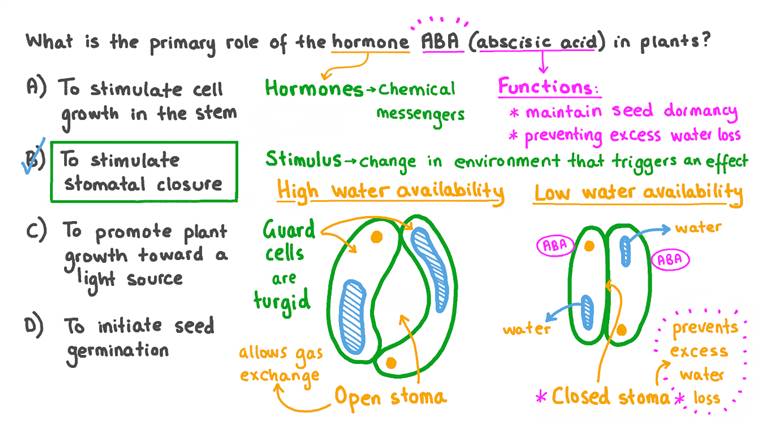 What is the primary role of the hormone ABA (abscisic acid) in plants?
A) To stimulate cell
growth in the stem
B) To stimulate
stomatal closure
C) To promote plant
growth toward a
light source
D) To initiate seed
germination
Hormones → Chemical
messengers
Functions:
* maintain seed dormancy
* preventing excess water loss
Stimulus → change in environment that triggers an effect
High water availability
Guard
cells
are
turgid
allows gas
exchange
Open stoma
Low water availability
ABA
water
ABA
water
* Closed stoma *
prevents
excess
water
loss